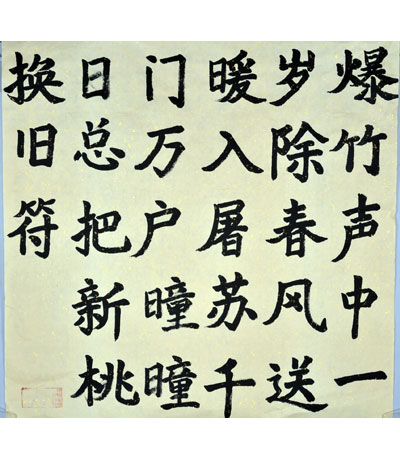 爆竹声中一
岁除春风送
暖入屠苏千
门万户曈曈
日总把新桃
换旧符